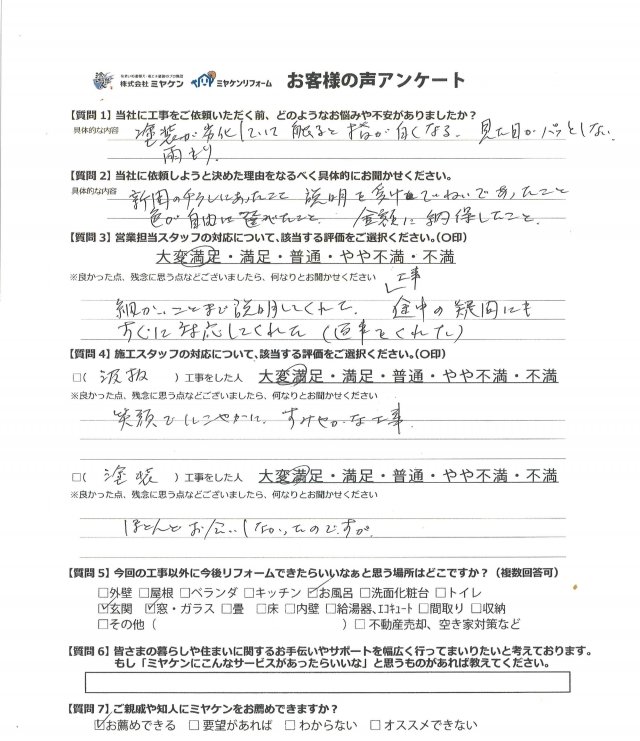 住まいの着替え・省エネ健康のプロ集団
株式会社 ミヤケン ミヤケンリフォーム お客様の声アンケート
【質問 1】当社に工事をご依頼いただく前、どのようなお悩みや不安がありましたか?
具体的な内容 塗装が劣化していて 触ると指が白くなる。見た目がパッとしない
雨もり.
【質問 2】当社に依頼しようと決めた理由をなるべく具体的にお聞かせください。
具体的な内容 新聞のチラシにあったこと 説明を受けていねいであったこと
色が自由に選べたこと 金額に納得したこと.
【質問 3】営業担当スタッフの対応について、該当する評価をご選択ください。(○印)
大変満足・満足・普通・やや不満・不満
※良かった点、残念に思う点などございましたら、何なりとお聞かせください 工事
細かいことまで説明してくれた. 途中の疑問にも
すぐに対応してくれた (返事をくれた)
【質問 4】施工スタッフの対応について、該当する評価をご選択ください。(○印)
□( 波板 )工事をした人 大変満足・満足・普通・やや不満・不満
※良かった点、残念に思う点などございましたら、何なりとお聞かせください
笑顔でにこやかに. すみやかな工事.
□( 塗装 )工事をした人 大変満足・満足・普通・やや不満・不満
※良かった点、残念に思う点などございましたら、何なりとお聞かせください
ほとんどお会いしなかったのですが.
【質問 5】今回の工事以外に今後リフォームできたらいいなぁと思う場所はどこですか?(複数回答可)
□外壁 □屋根 □ベランダ □キッチン ☑お風呂 □洗面化粧台 □トイレ
☑玄関 ☑窓・ガラス □畳 □床 □内壁 □給湯器、エコキュート □間取り □収納
□その他( ) □不動産売却、空き家対策など
【質問 6】皆さまの暮らしや住まいに関するお手伝いやサポートを幅広く行ってまいりたいと考えております。
もし「ミヤケンにこんなサービスがあったらいいな」と思うものがあれば教えてください。
【質問 7】ご親戚や知人にミヤケンをお薦めできますか?
☑お薦めできる □要望があれば □わからない □オススメできない